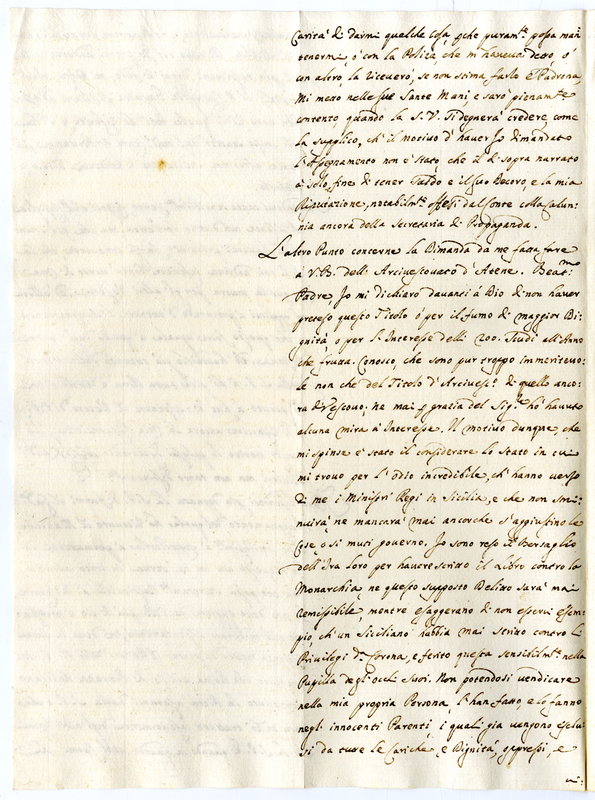 Carità di darmi qualche cosa, che puram.te possa man
tenermi, ò con la Poliza, che m'haveva detto, ò
con altro, la riceverò, se non stima farlo è Padrona
Mi metto nelle sue Sante Mani, e sarò pienam.te
contento, quando la S. V. si degnerà credere, come
la supplico, ch'il motivo d'haver Io dimandato
l'Assegnamento non è stato, che il di sopra narrato
à solo fine di tener saldo e il suo Decoro, e la mia
Riputazione, notabilm.te offesi dal fonte colla Calun,,
nia ancora della Secretaria di Propaganda.
L'altro Punto concerne la Dimanda da me fatta fare
à V. B. dell'Arcivescovato d'Atene. Beat.mo
Padre, Io mi dichiaro davanti à Dio di non haver
preteso questo Titolo ò per il fumo di maggior Di,,
gnità, ò per l'Interesse delli 200. Scudi all'Anno
che frutta. Conosco, che sono pur troppo immeritevo,,
le non che del Titolo d'Arcivesc.o di quello anco,,
ra di Vescovo: ne mai p gracia del Sig.re hò havuto
alcuna mira à Interesse. Il motivo dunque, che
mi spinse è stato il considerare lo stato in cui
mi trovo per l'odio incredibile, ch'hanno verso
di me i Ministri Regi in Sicilia, e che non smi,,
nuirà, ne mancarà mai ancorche s'aggiustino le
Cose, ò si muti governo. Io sono reso il Bersaglio
dell'Ira loro per havere scritto il Libro contro la
Monarchia, ne questo supposto Delitto sarà mai
remissibile, mentre essaggerano di non esservi esem,,
pio, ch'un Siciliano habbia mai scritto contro li
Privilegi d.a Corona, e ferito questa sensibilm.te nella
Pupilla degl'occhi suoi. Non potendosi vendicare
nella mia propria Persona, l'han fatto e lo fanno
negl'innocenti Parenti, i quali già vengono esclu,,
si da tutte le Cariche, e Dignità, oppressi, e